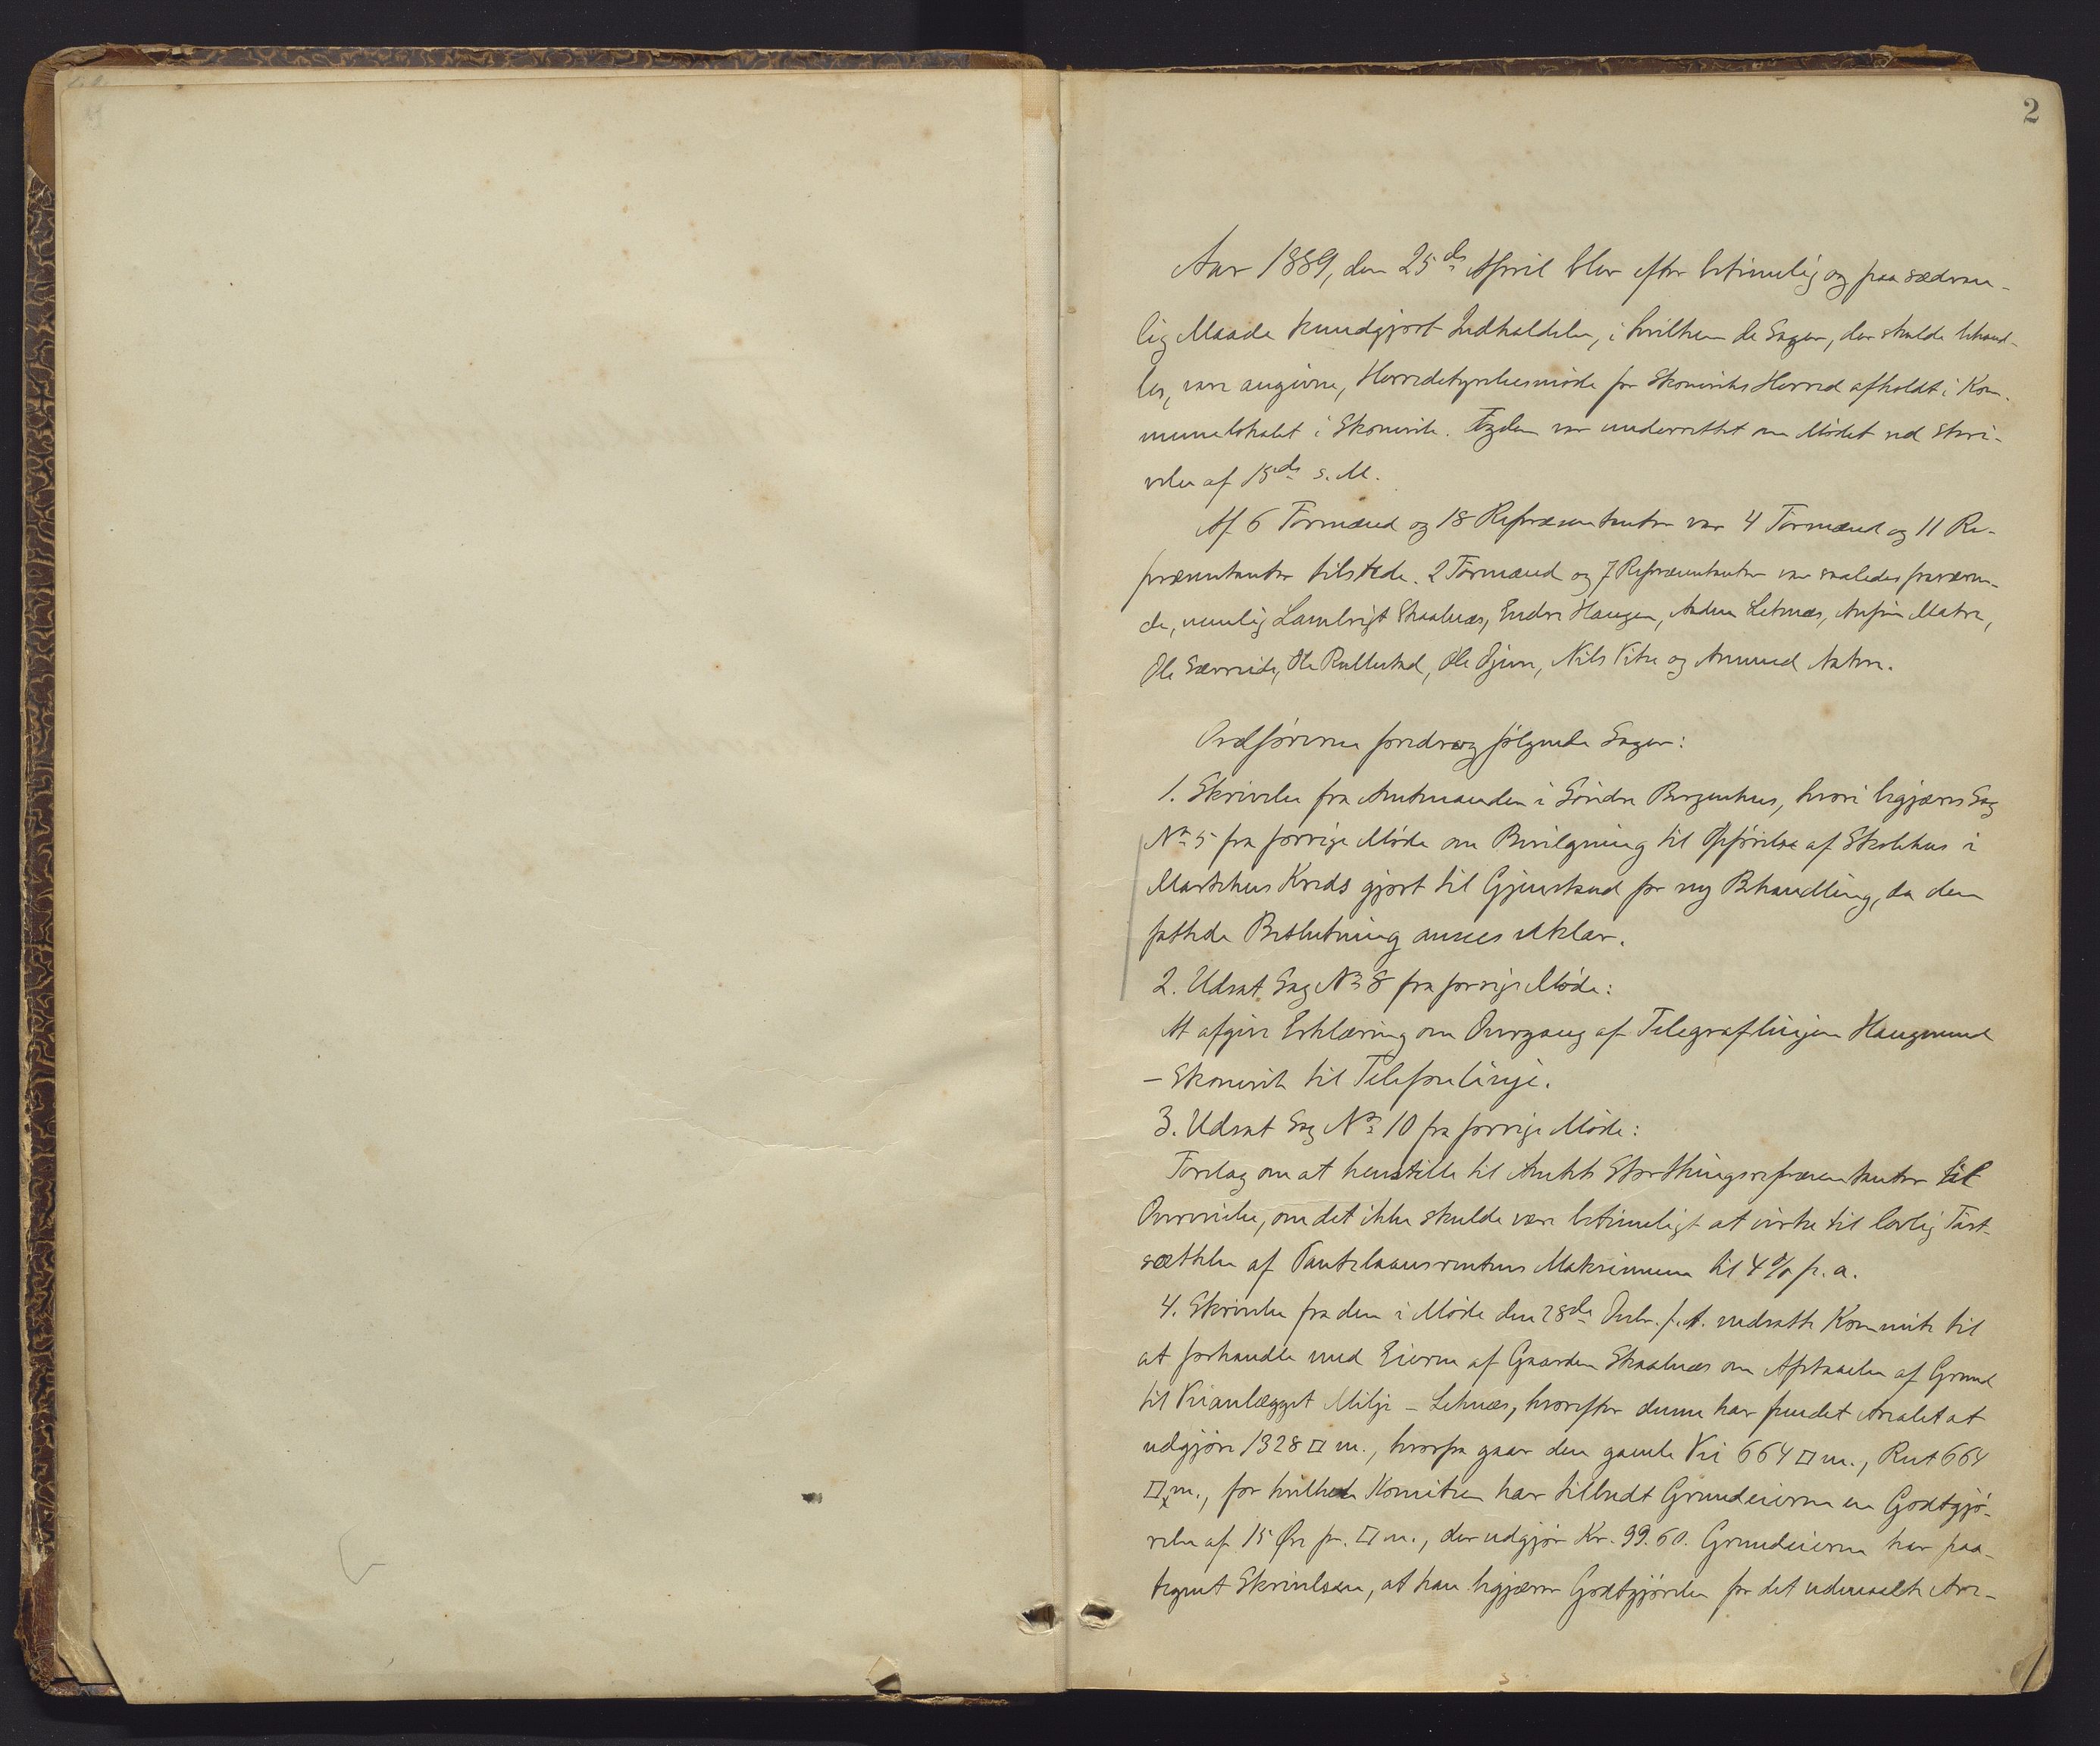 2
Aar 1889, den 25de April blev efter betimelig og paa sædvan-
lig Maade kundgjort Indkaldelse, i hvilken de Sager, der skulde behand-
les, vare angivne, Herredstyrelsesmøde for Skonevik Herred afholdt i Kom-
munelokalet i Skonevik. Fogden var underrettet om Mødet ved Skri-
velse af 15de s. M.
Af 6 Formænd og 18 Repræsentanter var 4 Formænd og 11 Re-
præsentanter tilstede. 2 Formænd og 7 Repræsentanter var saaledes fraværen-
de, nemlig Lambrigt Skaalnæs, Endre Haugen, Anders Letnæs, Anfin Matre,
Ole Særvride, Ole Rullestad, Ole Tjern, Nils Vike og Amund
Ordføreren foredrog følgende Sager:
1. Skrivelse fra Amtmanden i Søndre Bergenhus, hvori begjæres Sag
No 5 fra forrige Møde om Bevilgning til Opførelse af Skolehus i
Markhus Kreds gjort til Gjenstand for ny Behandling, da den
fattede Beslutning ansees uklar.
2. Udsat Sag No 8 fra forrige Møde:
At afgive Erklæring om Overgang af Telegraflinjen Haugesund
- Skonevik til Telefonlinje.
3. Udsat Sag No 10 fra forrige Møde:
Forslag om at henstille til Amtets Storthingsrepræsentanter til
Overveielse, om det ikke skulde være betimeligt at virke til lovlig Fast-
sættelse af Pantelaansrentens Maksimum til 4 % p. a.
4. Skrivelse fra den i Møde den 28de Decbr. f. A. nedsatte Kommite til
at forhandle med Eierne af Gaarden Skaalnæs om Afstaaelse af Grund
til Veianlægget Milje - Leknæs, hvorefter denne har fundet Arealet at
udgjøre 1328 □ m., hvorfra gaar den gamle Vei 664 □ m., Rest 664
□ m., for hvilket Komiteen har tilbudt Grundeierne en Godtgjø-
relse af 15 Øre pr. □ m., der udgjør Kr. 99.60. Grundeierne har paa-
tegnet Skrivelsen, at han begjærer Godtgjørelse for det udmaalte Are-